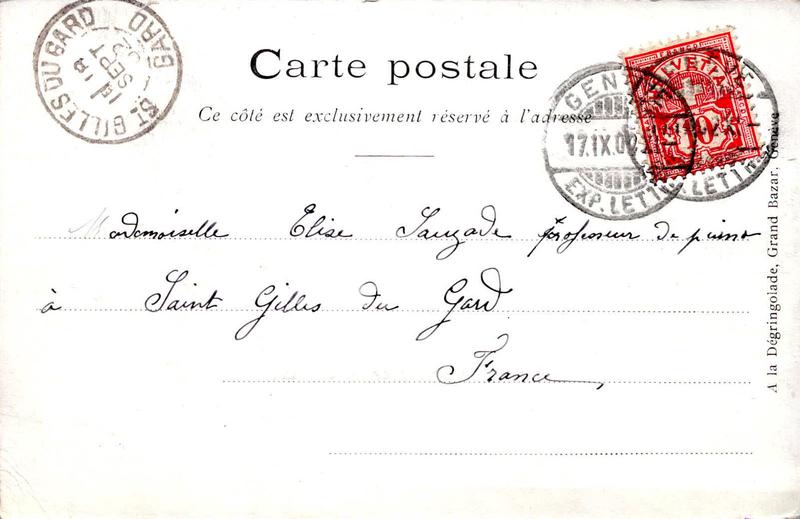 Carte postale
Ce côté est exclusivement réservé à l'adresse
Mademoiselle Elise Sauzade professeur de piano
à Saint Gilles du Gard
France,
ST. GILLES DU GARD
GARD
18
SEPT
GENÈVE
17.IX.
EXP. LETTR.
FRANCO
HELVETIA
10
A la Dégringolade, Grand Bazar, Genève